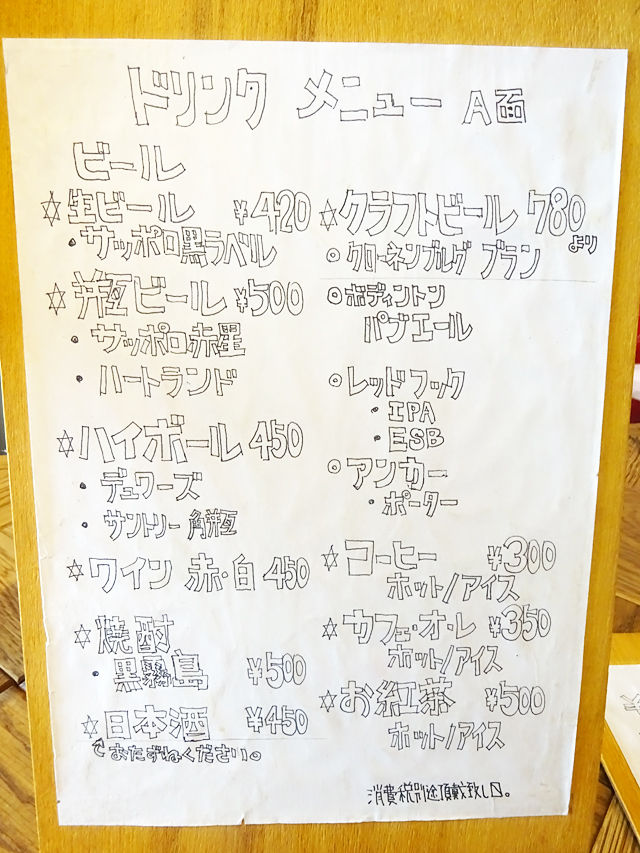 ドリンク メニュー A面
ビール
☆生ビール ¥420
・サッポロ黒ラベル
☆瓶ビール ¥500
・サッポロ赤星
・ハートランド
☆ハイボール 450
・デュワーズ
・サントリー 角瓶
☆ワイン 赤・白 450
☆焼酎
・黒霧島 ¥500
☆日本酒 ¥450
おたずねください。
☆クラフトビール 780
より
◦クローネンブルグ ブラン
◦ボディントン
パブエール
◦レッドフック
・IPA
・ESB
◦アンカー
・ポーター
☆コーヒー ¥300
ホット/アイス
☆カフェ・オ・レ ¥350
ホット/アイス
☆お紅茶 ¥500
ホット/アイス
消費税別途頂戴致し〼。